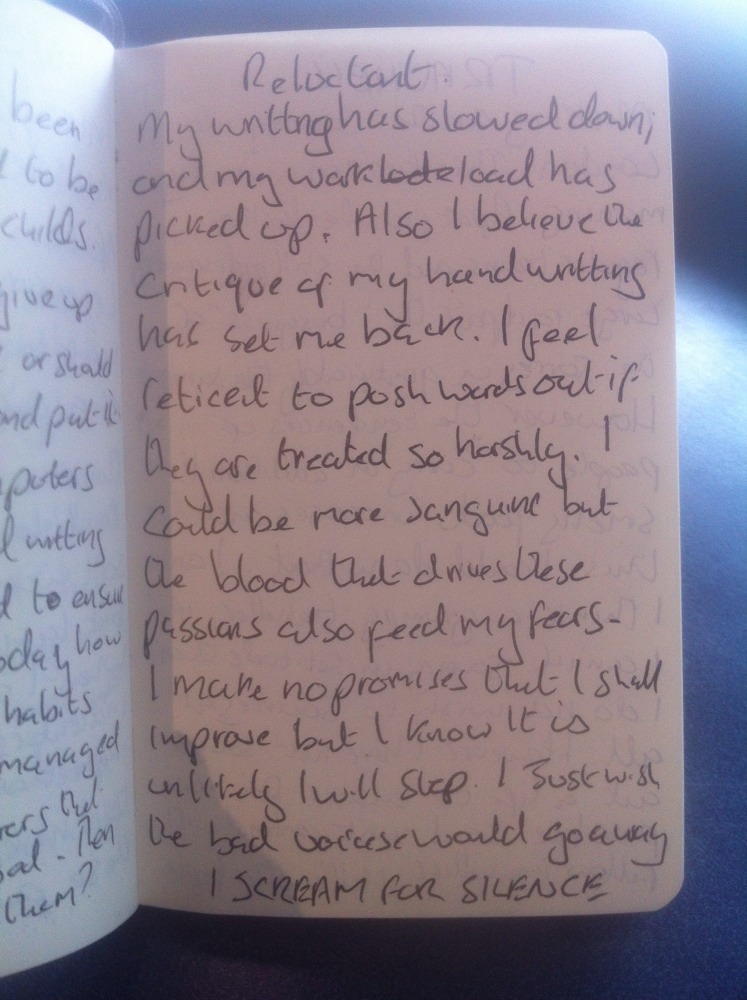 been
to be
childs.
give up
or should
and put it
puters
writting
to ensure
today how
habits
managed
that
Then
them?
Reluctant.
My writting has slowed down,
and my work load has
picked up. Also I believe the
critique of my hand writting
has set me back. I feel
reticent to push words out if
they are treated so harshly. I
Could be more sanguine but
the blood that drives these
passions also feed my fears-
I make no promises that I shall
improve but I know it is
unlikely I will stop. I Just wish
the bad voices would go away
I SCREAM FOR SILENCE